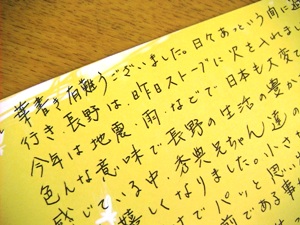 葉書き有難うございました。日々あっという間に過
行き、長野は、昨日ストーブに火を入れまし
今年は地震・雨などで、日本も大変な
色んな意味で長野の生活の豊か
感じている中、秀典兄ちゃん達の
嬉しくなりました。小さ
でパッと思い
前である事